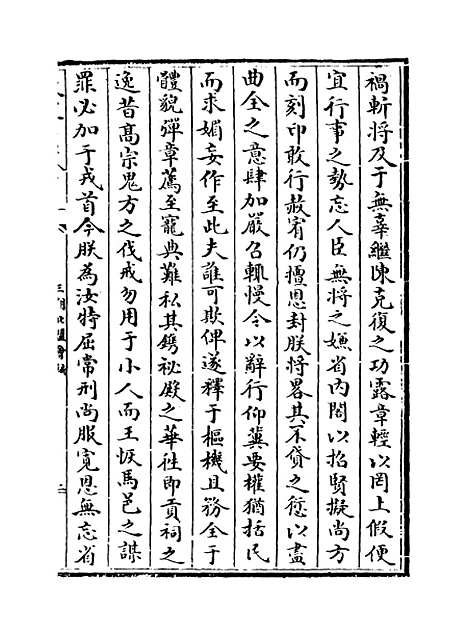 禍斬将及于無辜繼陳克復之功露章輕以罔上假便
宜行事之勢忘人臣無將之嫌省内閣以招賢擬尚方
而刻印敢行赦宥仍擅恩封朕將畧其不貸之愆以盡
曲全之意肆加嚴召輒慢令以辭行仰冀要權猶括民
而求媚妄作至此夫誰可欺俾遂釋于樞機且務全于
體貌彈章薦至寵典難私其鐫祕殿之華往即貢祠之
逸昔髙宗鬼方之伐戒勿用于小人而王恢馬邑之謀
罪必加于戎首今朕為汝特屈常刑尚服寛恩無忘省
三朝北盟會編